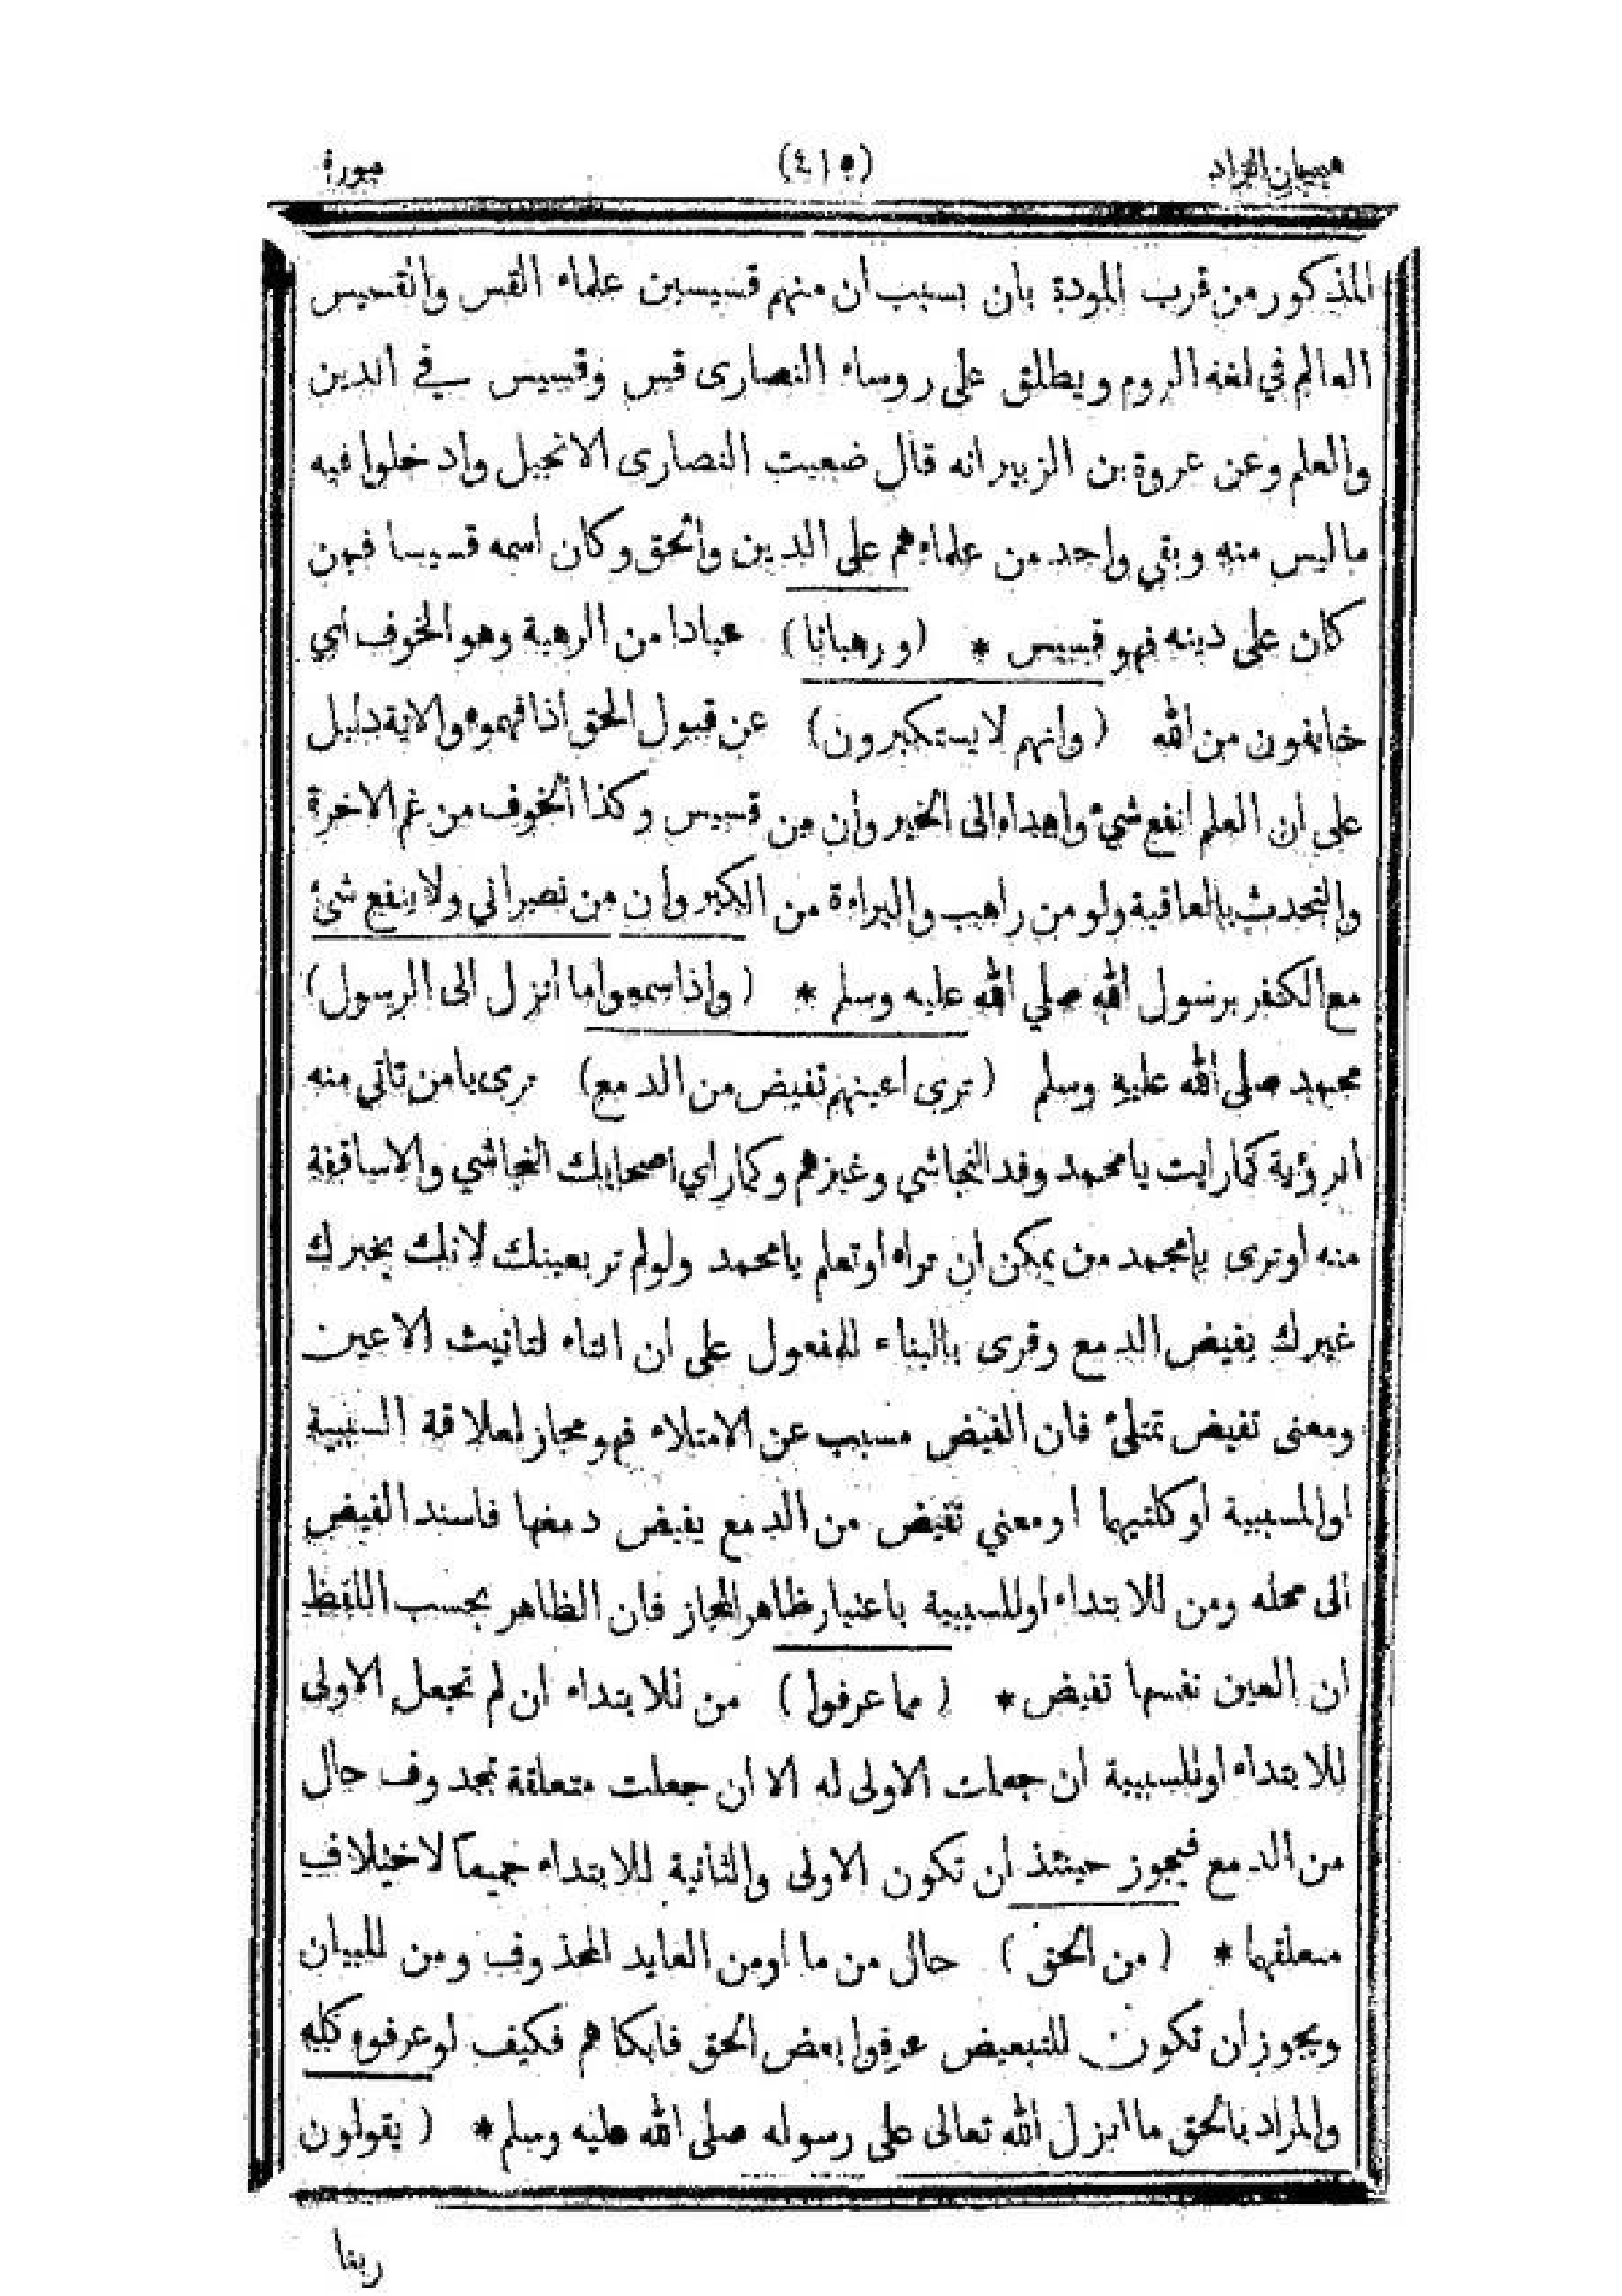 هيميان الزاد (٤١٥) سورة
المذكور من قرب المودة بان بسبب ان منهم قسيسين علماء القس والقسيس
العالم في لغة الروم ويطلق على روساء النصارى قس وقسيس في الدين
والعلم وعن عروة بن الزبير انه قال ضعيت النصارى الانجيل وادخلوا فيه
ما ليس منه وبقي واحد من علماءهم على الدين والحق وكان اسمه قسيسا فمن
كان على دينه فهو قسيس * (ورهبانا) عبادا من الرهبة وهو الخوف اي
خايفون من الله (وانهم لا يستكبرون) عن قبول الحق اذا فهموه والاية دليل
على ان العلم انفع شيء واهداه الى الخير وان من قسيس وكذا الخوف من غم الاخرة
والتحدث بالعاقبة ولو من راهب والبراءة من الكبر وان من نصراني ولا ينفع شئ
مع الكفر برسول الله صلي الله عليه وسلم * (واذا سمعوا ما انزل الى الرسول)
محمد صلى الله عليه وسلم (ترى اعينهم تفيض من الدمع) ترى يا من تاتي منه
الرؤية كما رايت يا محمد وفد النجاشي وغيرهم وكما راي اصحابك النجاشي والاساقفة
منه او ترى يا محمد من يمكن ان تراه او تعلم يا محمد ولو لم تر بعينك لانك يخبرك
غيرك بفيض الدمع وقرى بالبناء للمفعول على ان التاء لتانيث الاعين
ومعنى تفيض تمتلئ فان الفيض مسبب عن الامتلاء فهو مجاز لعلاقة السببية
او المسببية او كلتيهما او معني تفيض من الدمع يفيض دمعها فاسند الفيض
الى محله ومن للابتداء او للسببية باعتبار ظاهر المجاز فان الظاهر بحسب اللفظ
ان العين نفسها تفيض * (مما عرفوا) من للابتداء ان لم تجعل الاولى
للابتداء او للسببية ان جعلت الاولى له الا ان جعلت متعلقة بمحذوف حال
من الدمع فيجوز حينئذ ان تكون الاولى والثانية للابتداء جميعا لاختلاف
متعلقهما * (من الحق) حال من ما او من العايد المحذوف ومن للبيان
ويجوز ان تكون للتبعيض عرفوا بعض الحق فابكاهم فكيف لو عرفوه كله
والمراد بالحق ما انزل الله تعالى على رسوله صلى الله عليه وسلم * (يقولون
ربنا